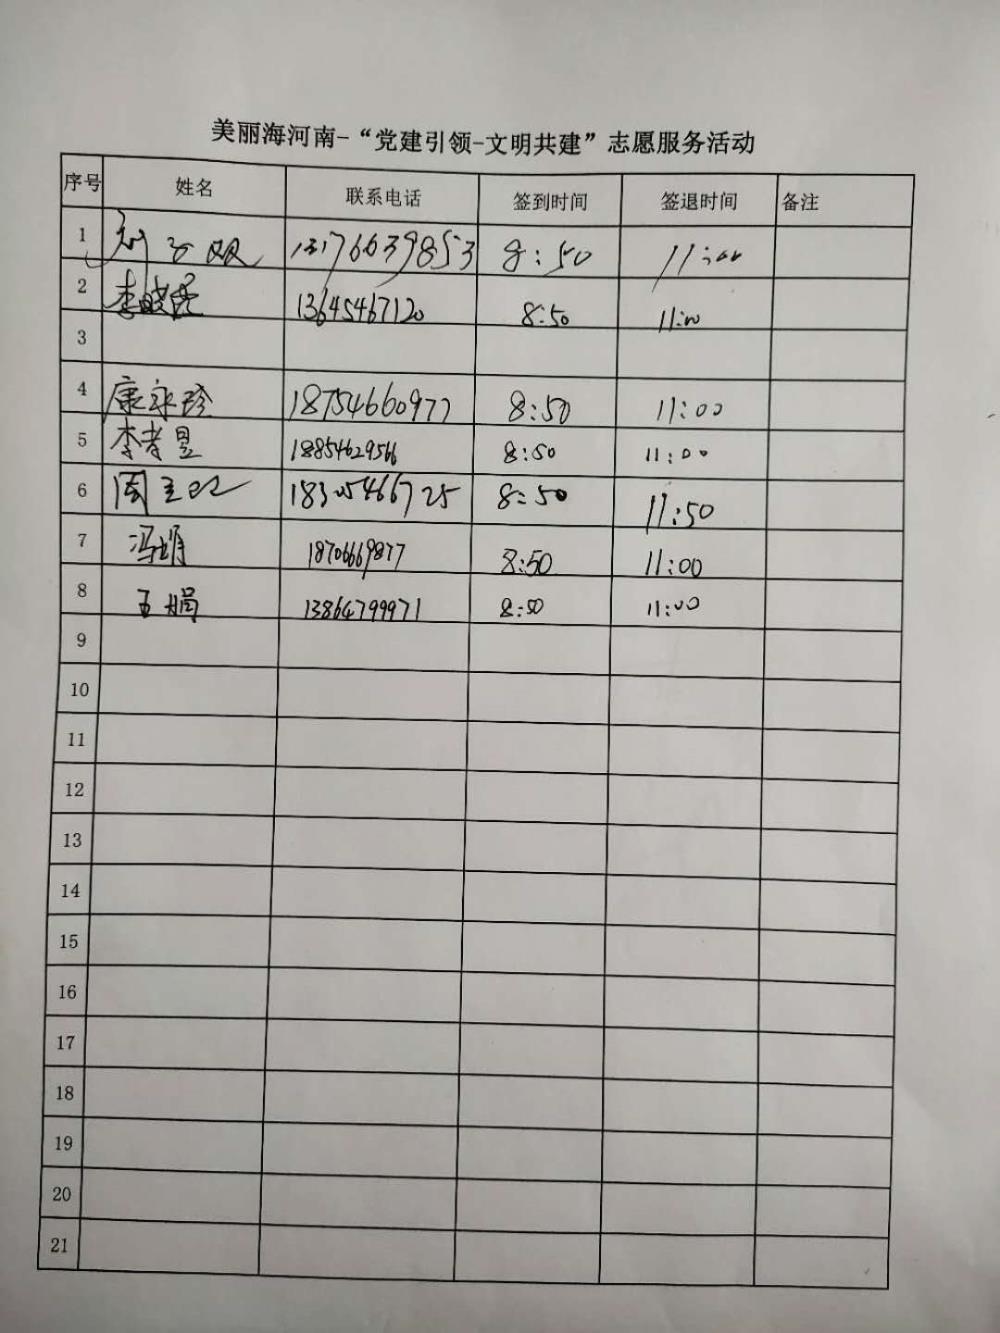 美丽海河南-“党建引领-文明共建”志愿服务活动
序号 姓名 联系电话 签到时间 签退时间 备注
1 刘 双 13176639853 8:50 11:00
2 李晓 13645467120 8:50 11:00
3
4 康永珍 18754660977 8:50 11:00
5 李孝昱 18854629566 8:50 11:00
6 周 8:50 11:50
7 冯娟 18706669877 8:50 11:00
8 王娟 13864799971 8:50 11:00
9
10
11
12
13
14
15
16
17
18
19
20
21